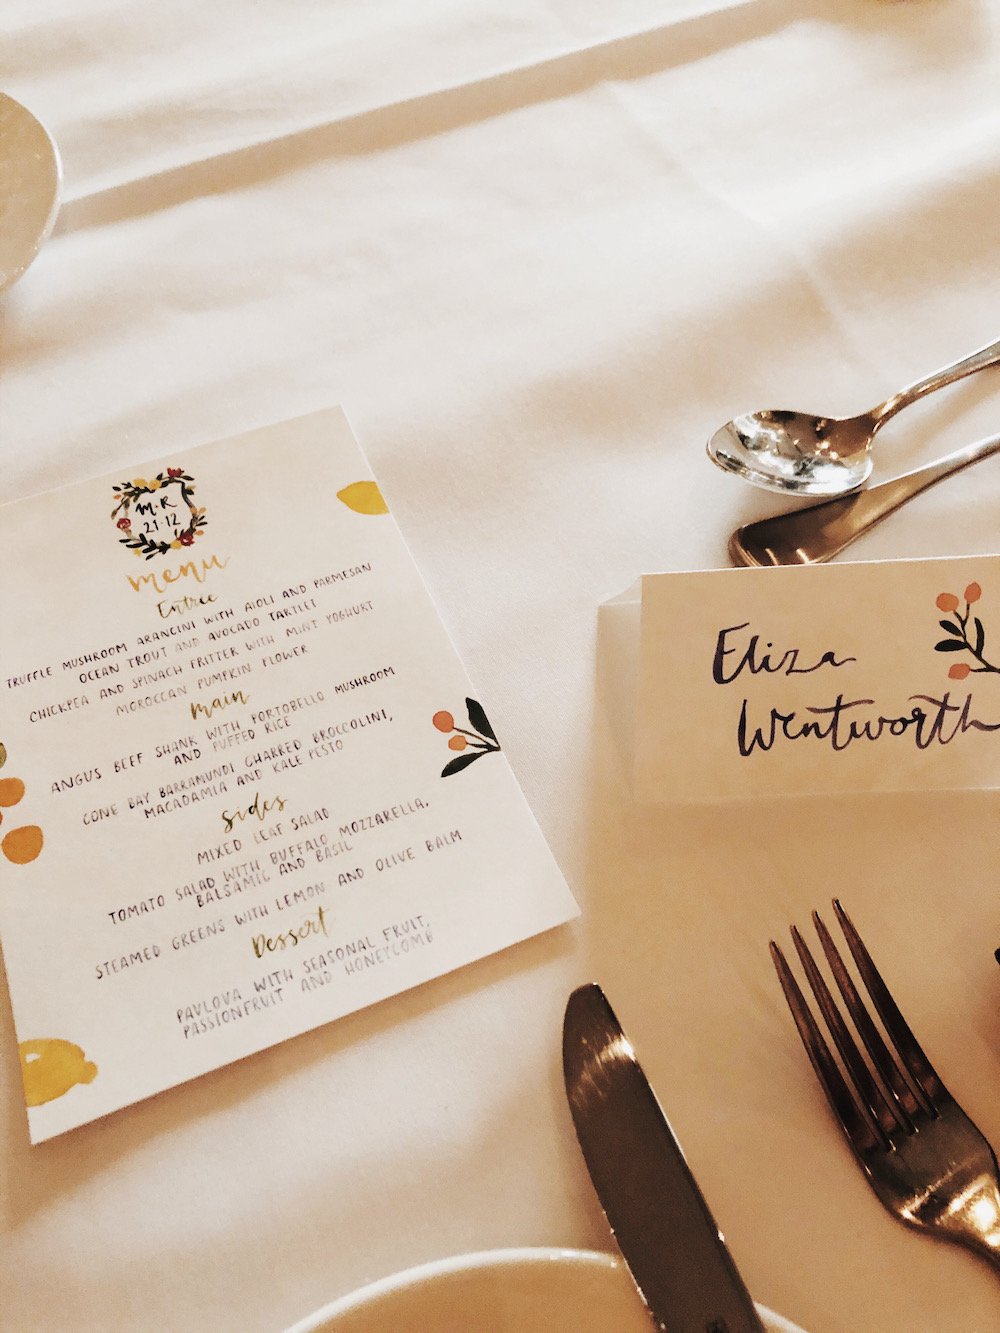 M·R
21·12
menu
Entrée
TRUFFLE MUSHROOM ARANCINI WITH AIOLI AND PARMESAN
OCEAN TROUT AND AVOCADO TARTLET
CHICKPEA AND SPINACH FRITTER WITH MINT YOGHURT
MOROCCAN PUMPKIN FLOWER
Main
ANGUS BEEF SHANK WITH PORTOBELLO MUSHROOM
AND PUFFED RICE
CONE BAY BARRAMUNDI CHARRED BROCCOLINI,
MACADAMIA AND KALE PESTO
Sides
MIXED LEAF SALAD
TOMATO SALAD WITH BUFFALO MOZZARELLA,
BALSAMIC AND BASIL
STEAMED GREENS WITH LEMON AND OLIVE BALM
Dessert
PAVLOVA WITH SEASONAL FRUIT,
PASSIONFRUIT AND HONEYCOMB
Eliza
Wentworth